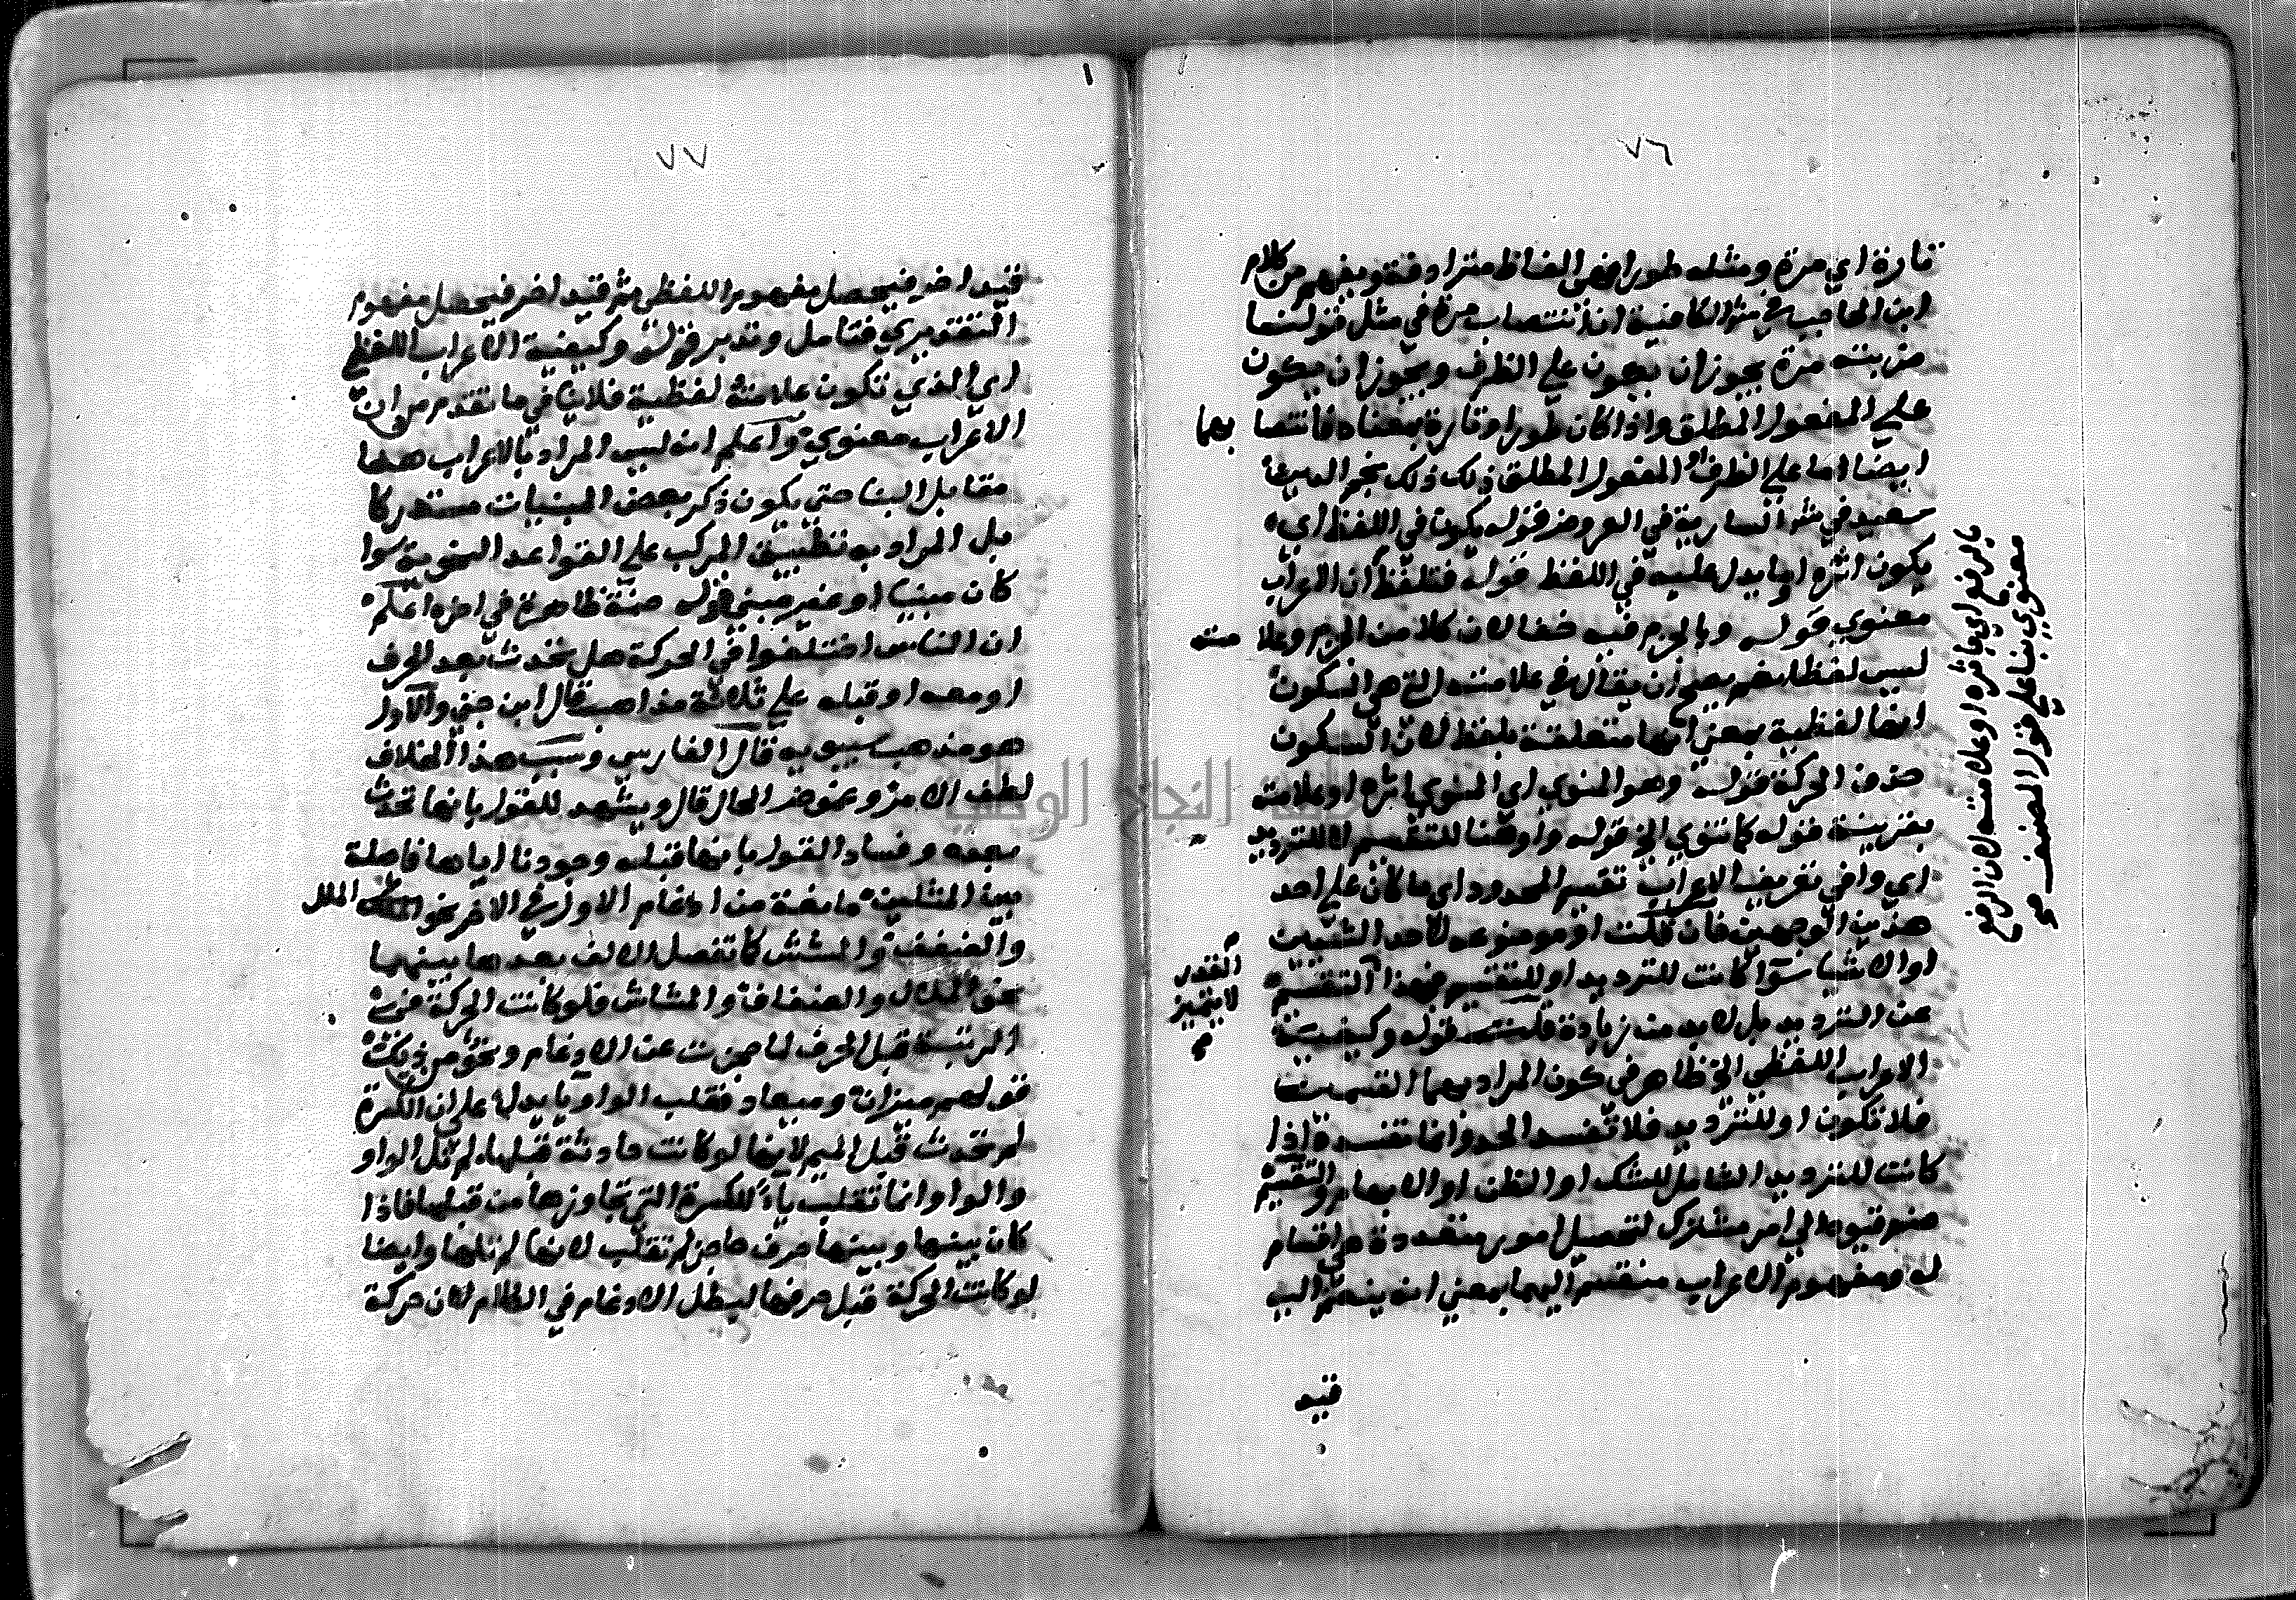 ٧٦
تارة اي مرة ومثله طورا فهي الفاظ مترادفة ويفهم من كلام
ابن الحاجب في شرح الكافية ان انتصاب مرة في مثل قولنا
ضربته مرة يجوز ان يكون على الظرف ويجوز ان يكون
على المفعول المطلق واذا كان طورا وتارة بمعناه فانتصا بهما
ايضا اما على الظرف او المفعول المطلق ذلك ذلك نجم الدين
سعيد في شرح الساوية في العروض قوله يكون في اللفظ اي
يكون اثره او ما يدل عليه في اللفظ قوله فتلفظ ان الاعراب
معنوي قوله وبالجزم فيه خفا لان كلا من الجزم وعلا مته
ليس لفظا نعم يصح ان يقال في علامته التي هي السكون
انها لفظية بمعنى انها متعلقة بلفظ لان السكون
حذف الحركة قوله وهو المنوي اي المنوي اثره او علامته
بقرينة قوله كما تنوي الخ قوله واوهنا للتقسيم لا للترديد
اي وا في تعريف الاعراب تقسيم المحدود اي ما كان على احد
هذين الوجهين فان قلت او موضوعه لاحد الشيئين
او الاشيا سوآ كانت للترديد او للتقسيم فهذا التقسيم
عن الترديد بل لا بد من زيادة قلت قوله وكيفية
الاعراب اللفظي الخ ظاهر في كون المراد بهما القسمين
فلا تكون او للترديد فلا تفسد الحد وانما تفسد واذا
كانت للترديد الشامل للشك او الظن او الابهام والتقسيم
ضم قيود الى امر مشترك لتحصيل امور متعددة هي اقسام
له ومفهوم الاعراب منقسم اليهما بمعنى انه ينضم اليه
قيد
القدر
لا يتميز
بالرفع اي باثره او علامته لان الرفع
معنوي بنا على قول المصنف
٧٧
قيد اخر فيحصل مفهوم اللفظي ثم قيد اخر فيحصل مفهوم
التقديري فتامل وتدبر قوله وكيفية الاعراب اللفظي
اي الذي تكون علامته لفظية فلا ينافي ما تقدم من ان
الاعراب معنوي واعلم انه ليس المراد بالاعراب ههنا
مقابل البنا حتى يكون ذكر بعض المبنيات مستدركا
بل المراد به تطبيق المركب على القواعد النحوية سوا
كان مبنيا او غير مبني قوله ضمة ظاهرة في اخره اعلم
ان الناس اختلفوا في الحركة هل تحدث بعد الحرف
او معه او قبله على ثلاثة مذاهب قال ابن جني والاول
هو مذهب سيبويه قال الفارسي وسبب هذا الخلاف
لطف الامر وغموض الحال قال ويشهد للقول بانها تحدث
بعده وفساد القول بانها قبله وجودنا اياها فاصلة
بين المثلين مانعة من ادغام الاول في الاخر نحو الملل
والضفف والمشش كما تفصل الالف بعدها بينهما
نحو الملال والضفاف والمشاش فلو كانت الحركة في
الرتبة قبل الحرف لما حجزت عن الادغام ونحو من ذلك
قولهم ميزان وميعاد فقلب الواو يا يدل على ان الكسرة
لم تحدث قبل الميم لانها لو كانت حادثة قبلها لم تل الواو
والواو انما تقلب يآ للكسرة التي تجاوزها من قبلها فاذا
كان بينها وبينها حرف حاجز لم تقلب لانها لم تلها وايضا
لو كانت الحركة قبل حرفها لبطل الادغام في الكلام لان حركة